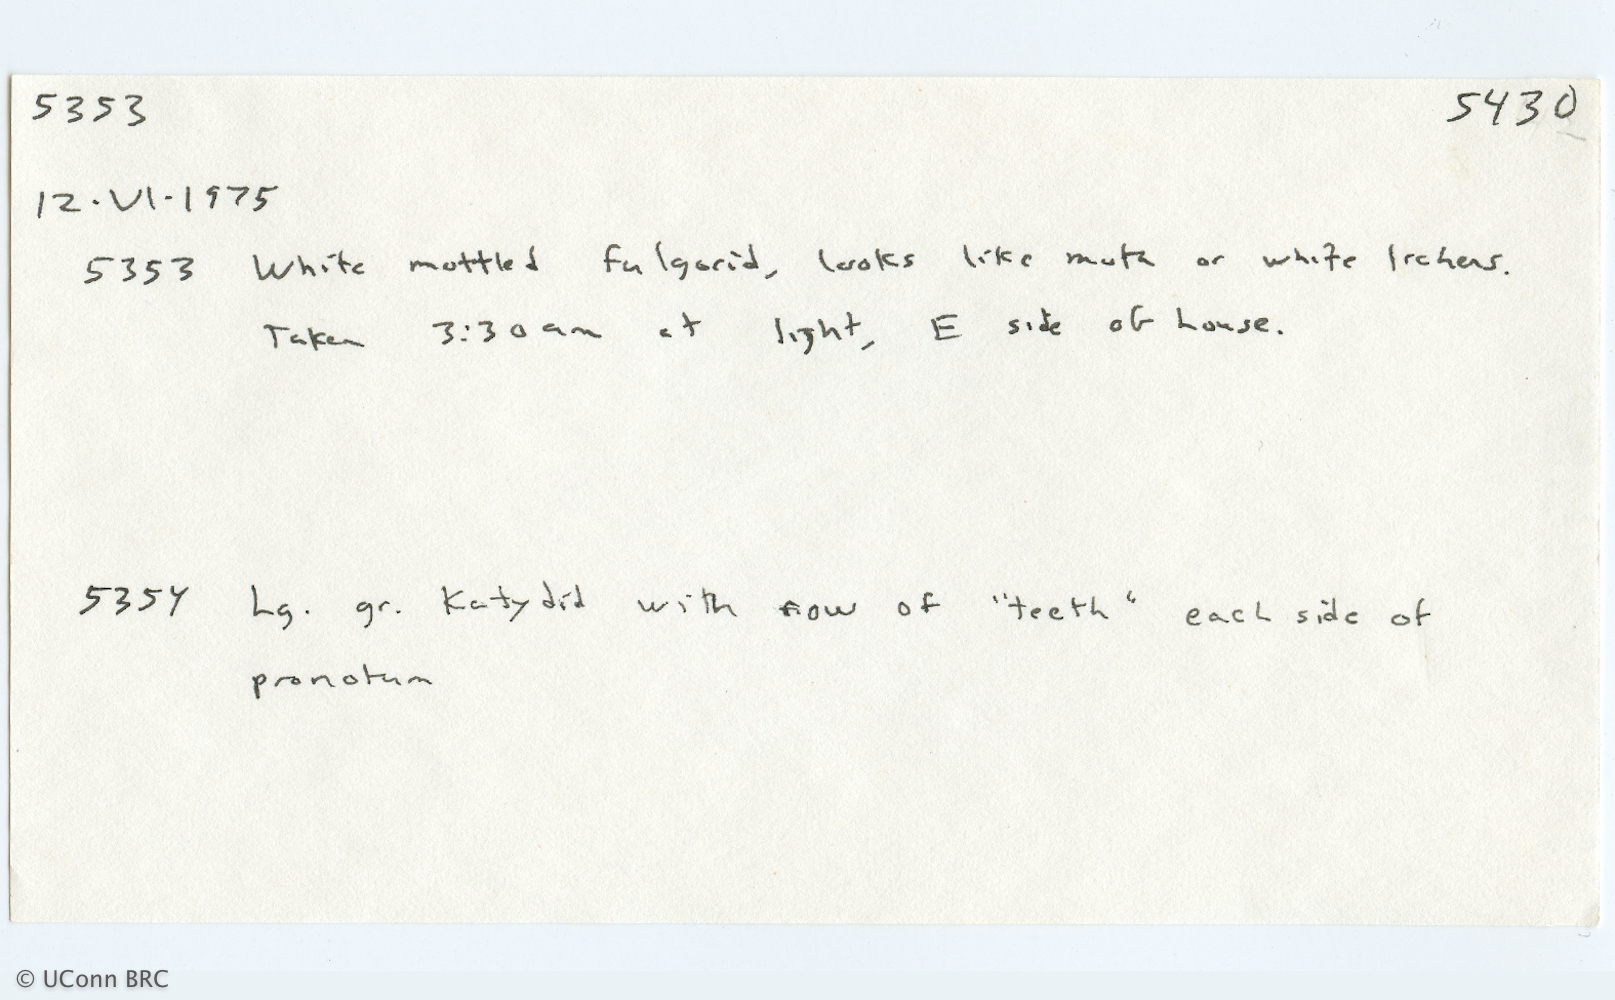 5353 5430
12.VI.1975
5353 White mottled fulgorid, looks like moth or white lichens.
Taken 3:30 am at light, E side of house.
5354 Lg. gr. Katydid with row of "teeth" each side of
pronotum
© UConn BRC